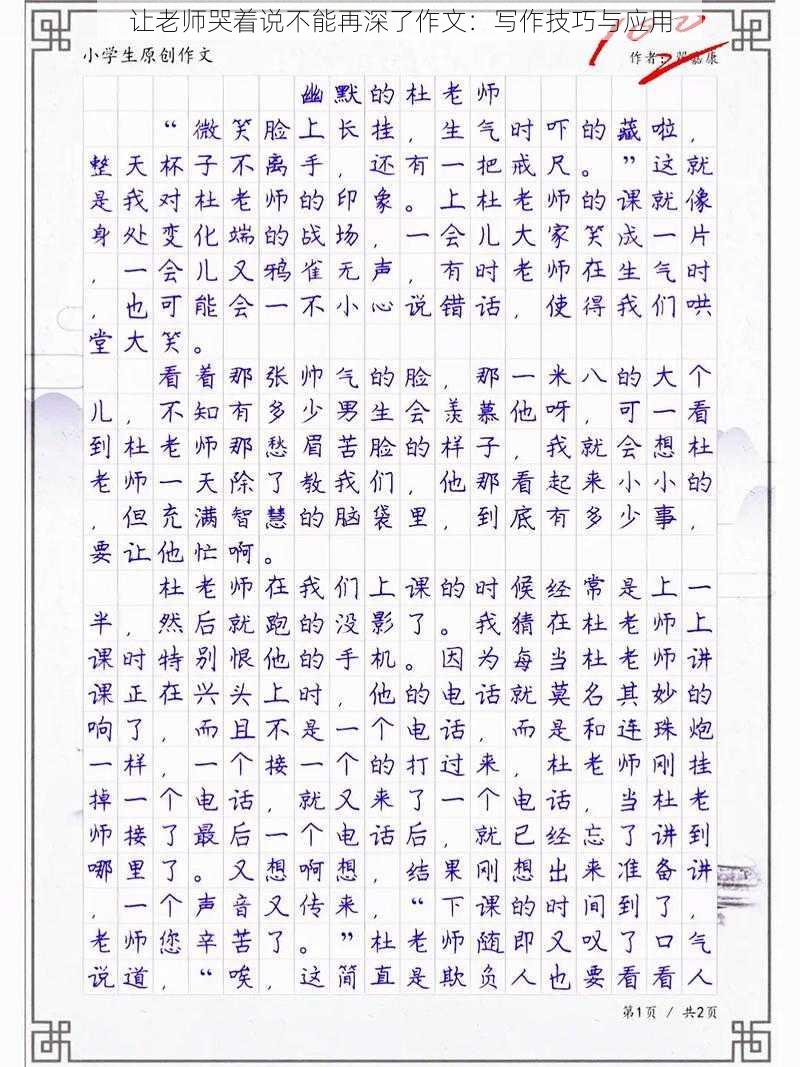 让老师哭着说不能再深了作文：写作技巧与应用
100
小学生原创作文
作者：嘉康
幽默的杜老师
“微笑脸上长挂，生气时吓的藏啦，
整天杯子不离手，还有一把戒尺。”这就
是我对杜老师的印象。上杜老师的课就像
身处变化端的战场，一会儿大家笑成一片
，一会儿又鸦雀无声，有时老师在生气时
，也可能会一不小心说错话，使得我们哄
堂大笑。
看着那张帅气的脸，那一米八的大个
儿，不知有多少男生会羡慕他呀，可一看
到杜老师那愁眉苦脸的样子，我就会想杜
老师一天除了教我们，他那看起来小小的
，但充满智慧的脑袋里，到底有多少事，
要让他忙啊。
杜老师在我们上课的时候经常是上一
半，然后就跑的没影了。我猜在杜老师上
课时特别恨他的手机。因为每当杜老师讲
课正在兴头上时，他的电话就莫名其妙的
响了，而且不是一个电话，而是和连珠炮
一样，一个接一个的打过来，杜老师刚挂
掉一个电话，就又来了一个电话，当杜老
师接了最后一个电话后，就已经忘了讲到
哪里了。又想啊想，结果刚想出来准备讲
，一个声音又传来，“下课的时间到了，
老师您辛苦了。”杜老师随即又叹了口气
说道，“唉，这简直是欺负人也要看看人
第1页 / 共2页